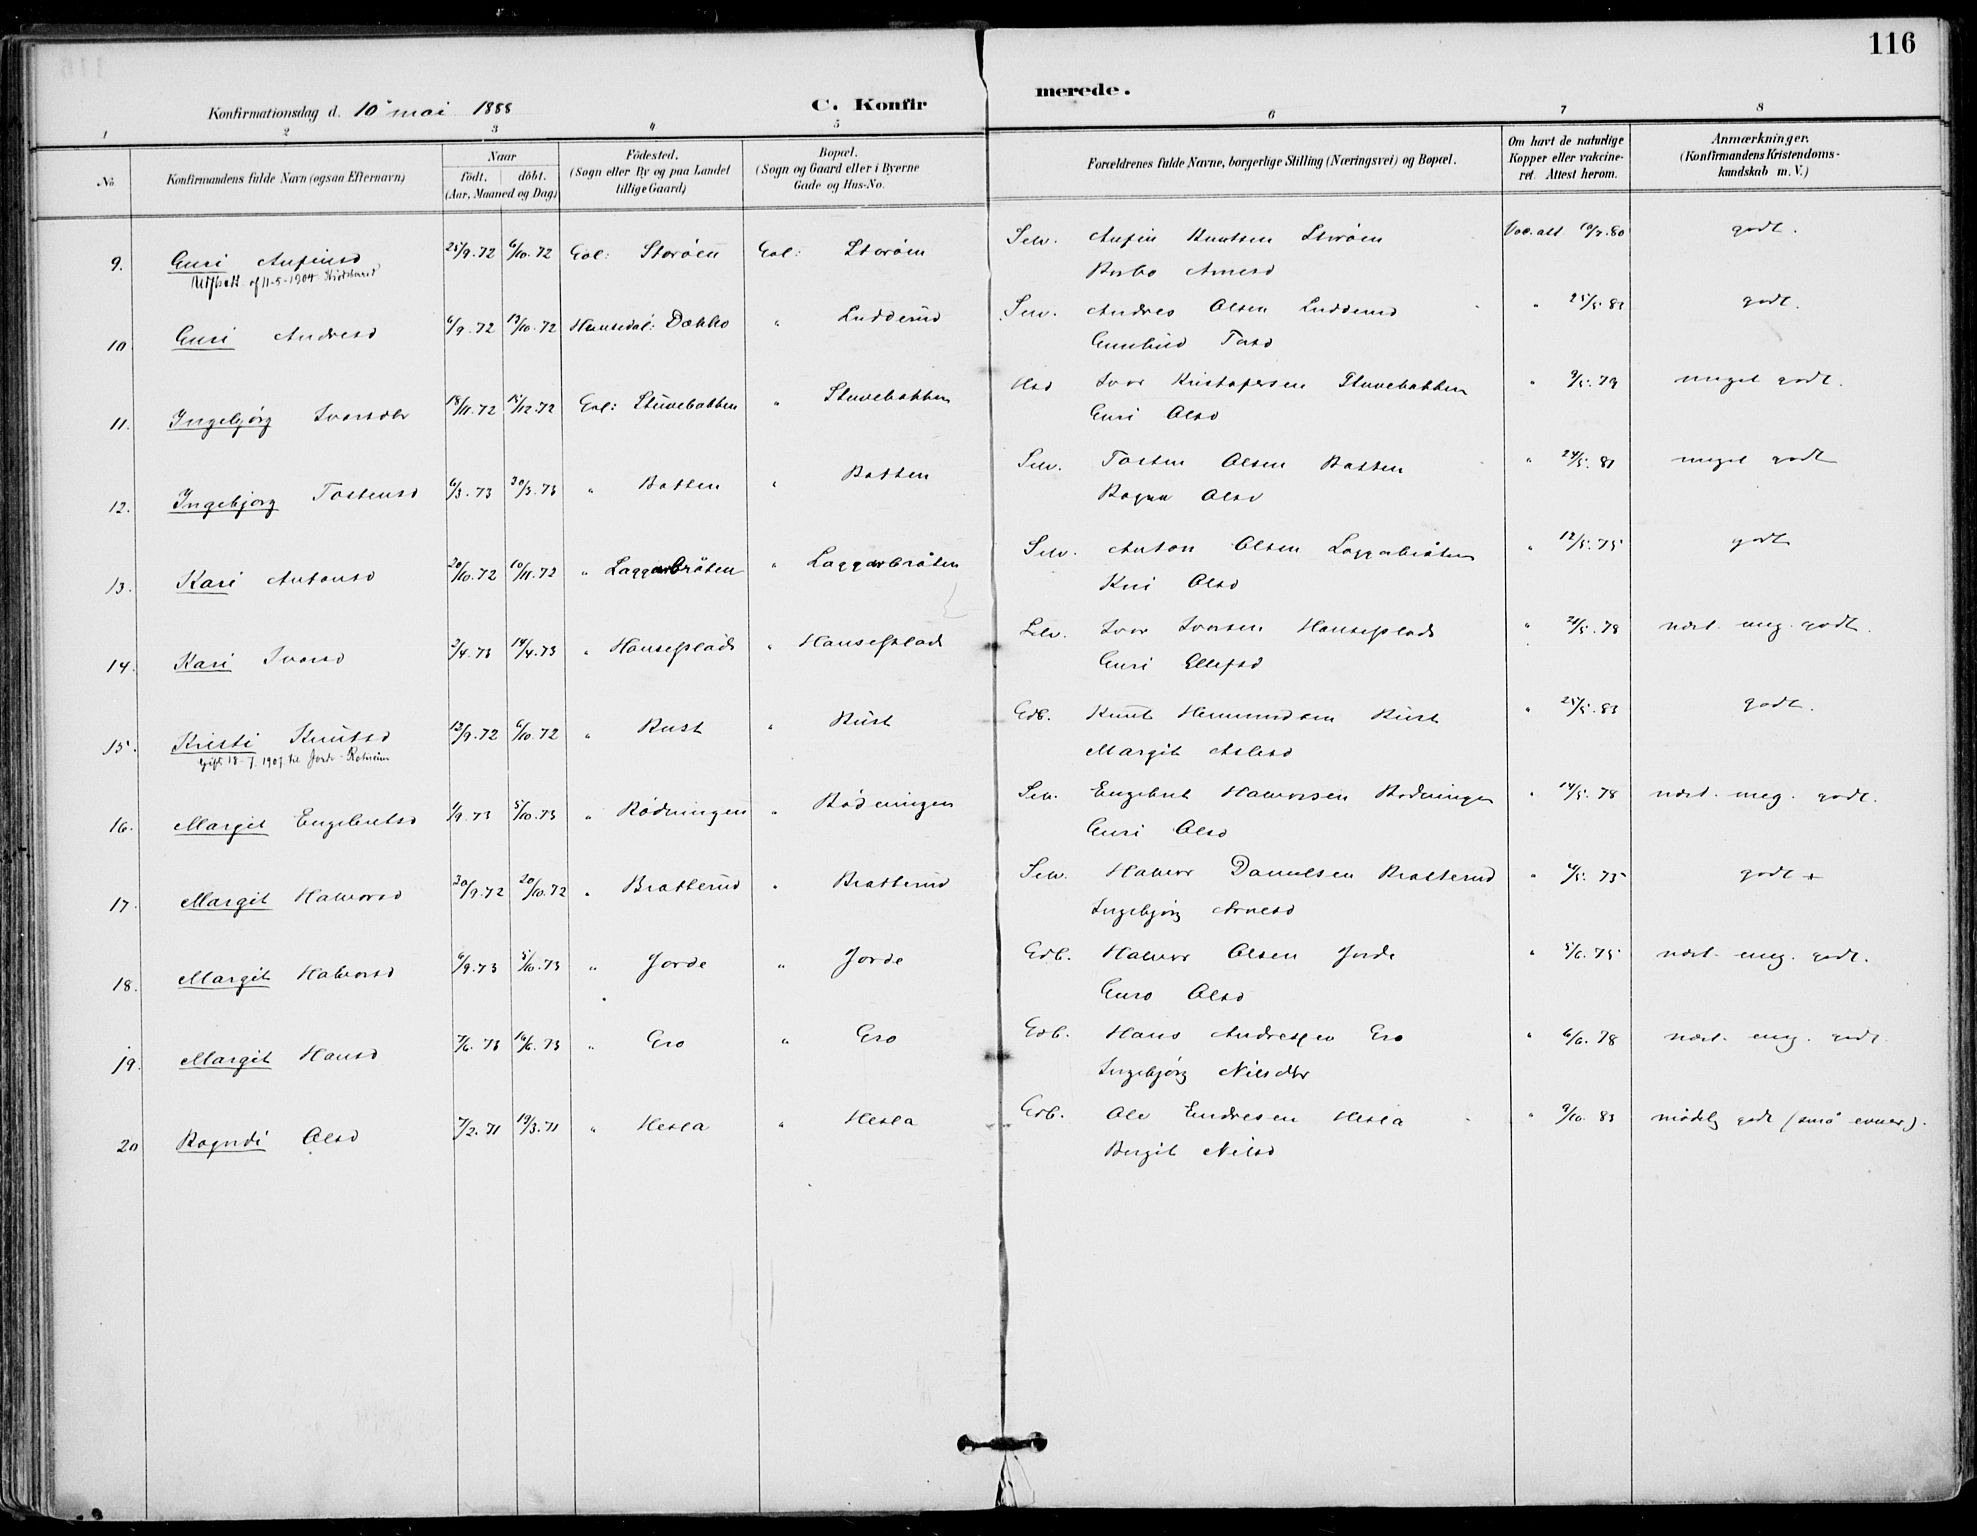 116
Konfirmationsdag d. 10 mai 1888
C. Konfirmerede.
1 2 3 4 5 6 7 8
No
Konfirmandens fulde Navn (ogsaa Efternavn)
Naar
födt. döbt.
(Aar, Maaned og Dag)
Födested.
(Sogn eller By og paa Landet
tillige Gaard)
Bopæl.
(Sogn og Gaard eller i Byerne
Gade og Hus-No.
Forældrenes fulde Navne, borgerlige Stilling (Næringsvei) og Bopæl.
Om havt de naturlige
Kopper eller vakcine-
ret. Attest herom.
Anmærkninger.
(Konfirmandens Kristendoms-
kundskab m. V.)
9. Guri Anfinsd 25/9.72 6/10.72 Gol: Storöen Gol: Storöen Selv. Anfin Knutsen Storöen Vac. att 10/7.80 godt.
Utfl.att. af 11-5-1904
Barbo Arnesd
10 Guri Andresd 6/9.72 13/10.72 Hemsedal: Dokko " Ludderud Selv. Andres Olsen Ludderud " 25/5.83 godt.
Gunhild Torsd
11. Ingebjörg Ivarsdtr 18/11.72 15/12.72 Gol: Stuvebakken " Stuvebakken Hsd Ivar Kristofersen Stuvebakken " 9/5.79 meget godt.
Guri Olsd
12. Ingebjörg Tostensd 6/3.73 30/3.73 " Batten " Batten Selv. Tosten Olsen Batten " 24/5.81 meget godt
Ragna Olsd
13. Kari Antonsd 20/10.72 10/11.72 " Laggarbråten " Laggarbråten Selv. Anton Olsen Laggabråten " 12/5.75 godt
Kari Olsd
14. Kari Ivarsd 2/4.73 14/4.73 " Hansesplads " Hansesplads Selv. Ivar Ivarsen Hansesplads " 24/5.78 næst. meg. godt.
Guri Ellefsd
15. Kristi Knutsd 13/9.72 6/10.72 " Rust " Rust Gdb. Knut Hermundsen Rust " 25/5.83 godt.
gift 18-7.1907 til Jordr. Rotneim
Margit Aslesd
16. Margit Engebretsd 1/9.73 5/10.73 " Rödningen " Rödningen Selv. Engebret Halvorsen Rödningen " 14/5.78 næst. meg. godt.
Guri Olsd
17. Margit Halvorsd 30/9.72 20/10.72 " Bratterud " Bratterud Selv. Halvor Danielsen Bratterud " 4/5.75 godt +
Ingebjörg Arnesd
18. Margit Halvorsd 6/9.73 5/10.73 " Jorde " Jorde Gdb. Halvor Olsen Jorde " 5/6.75 næst. meg. godt.
Guro Olsd
19. Margit Hansd 7/6.73 16/6.73 " Gro " Gro Gdb. Hans Andresen Gro " 6/6.78 næst. meg. godt
Ingebjörg Nilsdtr
20 Ragndi Olsd 7/2.71 19/3.71 " Hesla " Hesla Gdb. Ole Endresen Hesla " 9/10.83 mådelig godt (små evner).
Birgit Nilsd